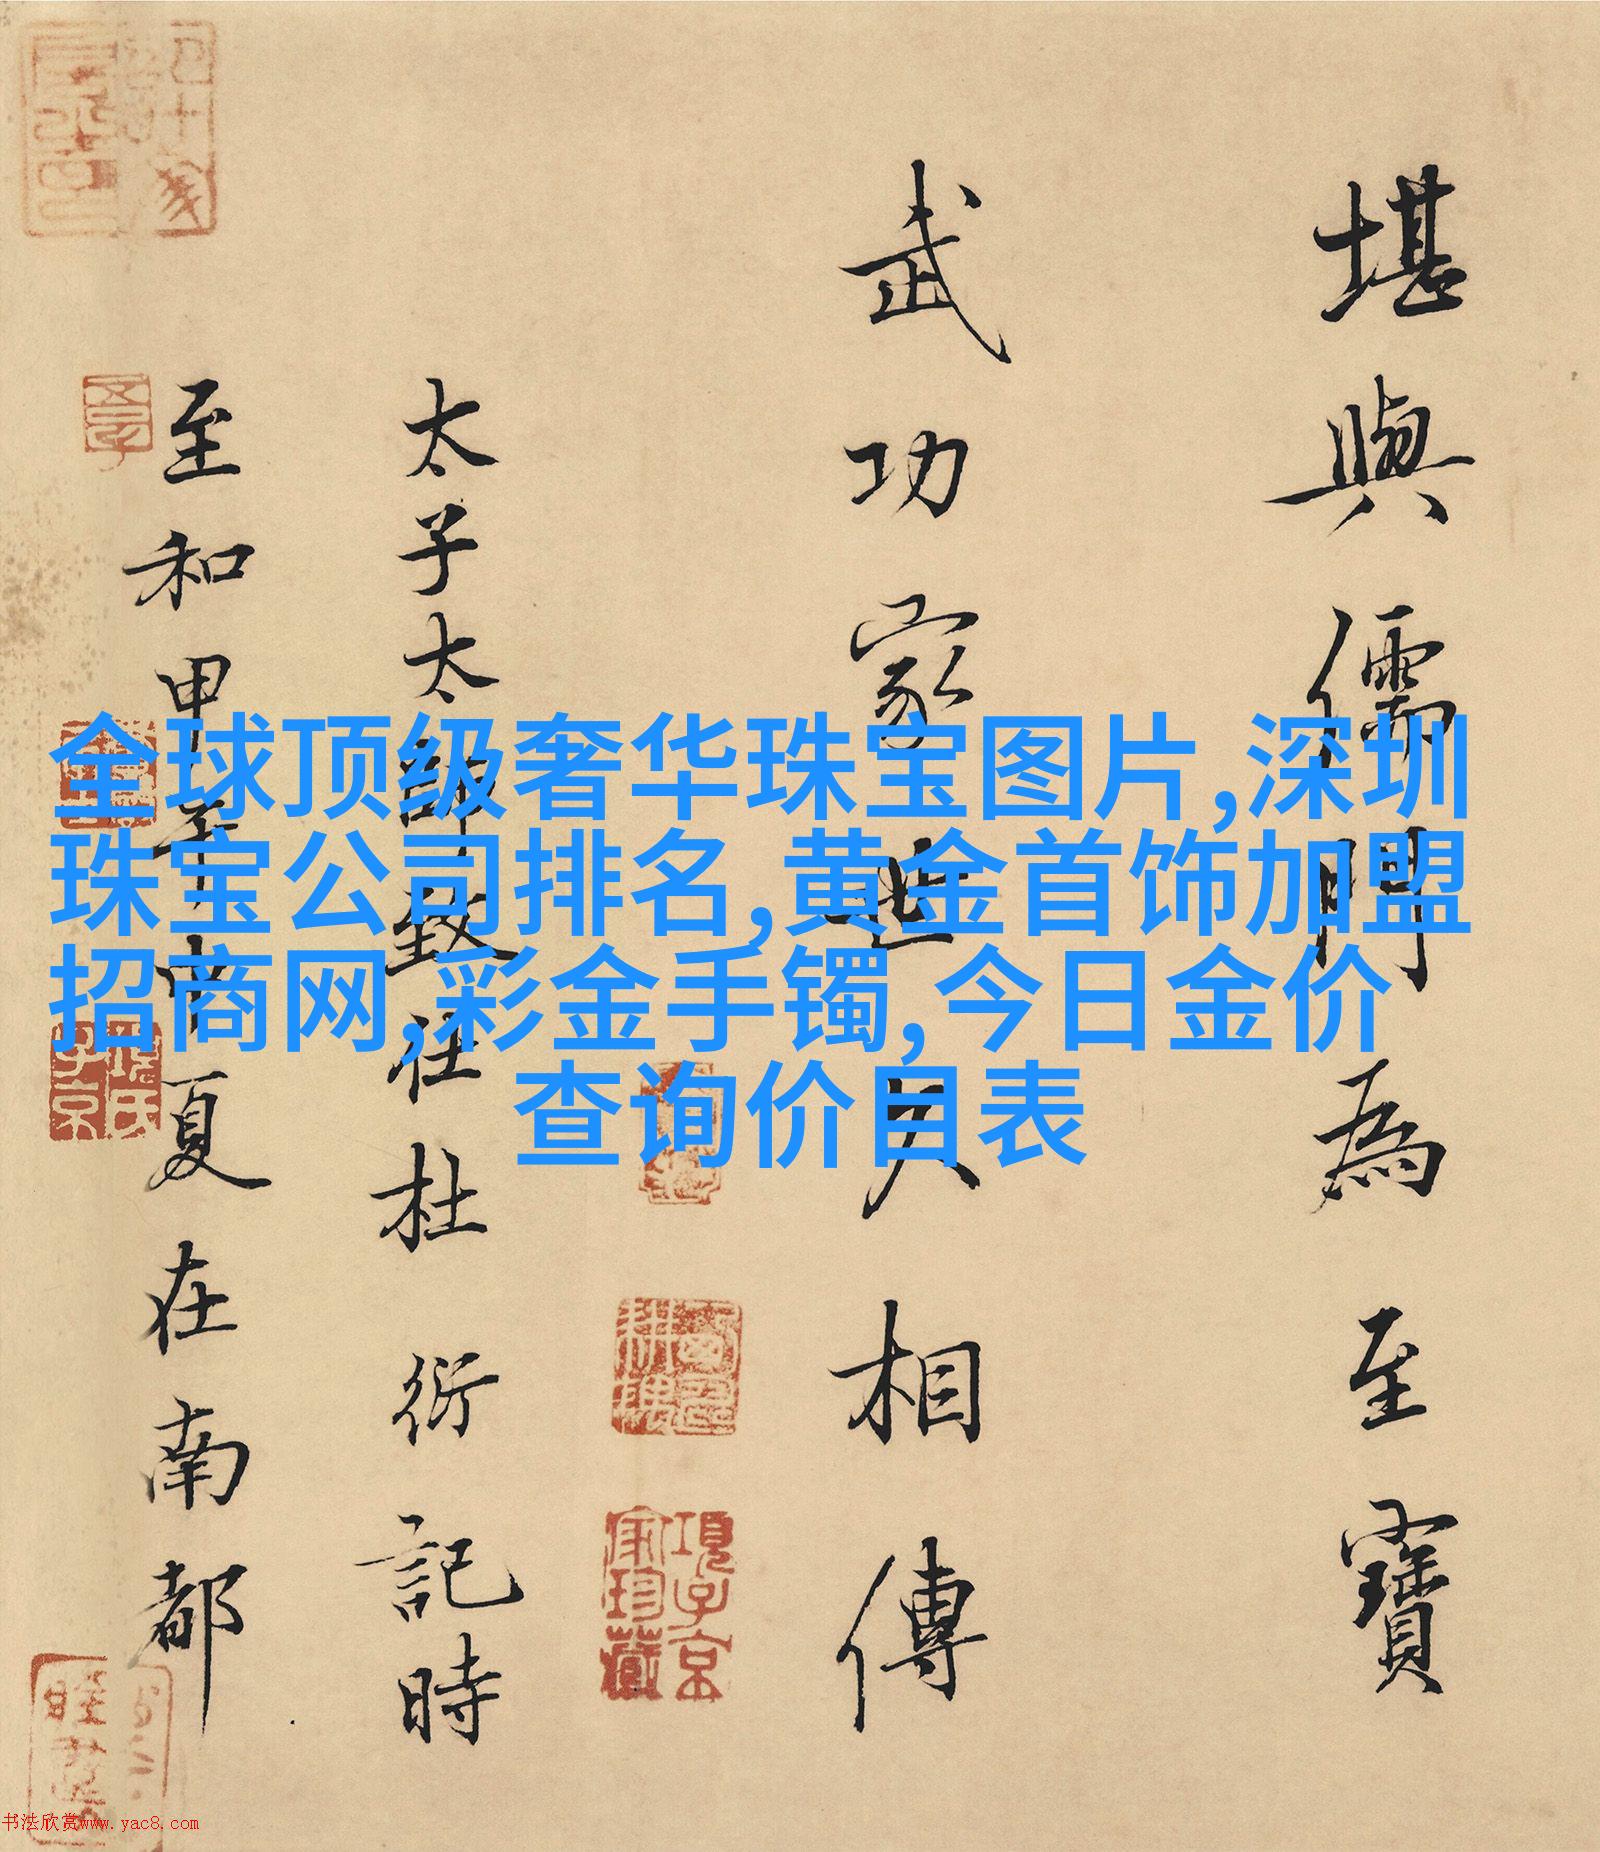 堪輿儒門為至寶
武功家世久相傳
太子太師致仕杜衍記時
至和甲午中夏在南都
項子京家珍藏
全球顶级奢华珠宝图片,深圳
珠宝公司排名,黄金首饰加盟
招商网,彩金手镯,今日金价
查询价目表
书法欣赏www.yac8.com